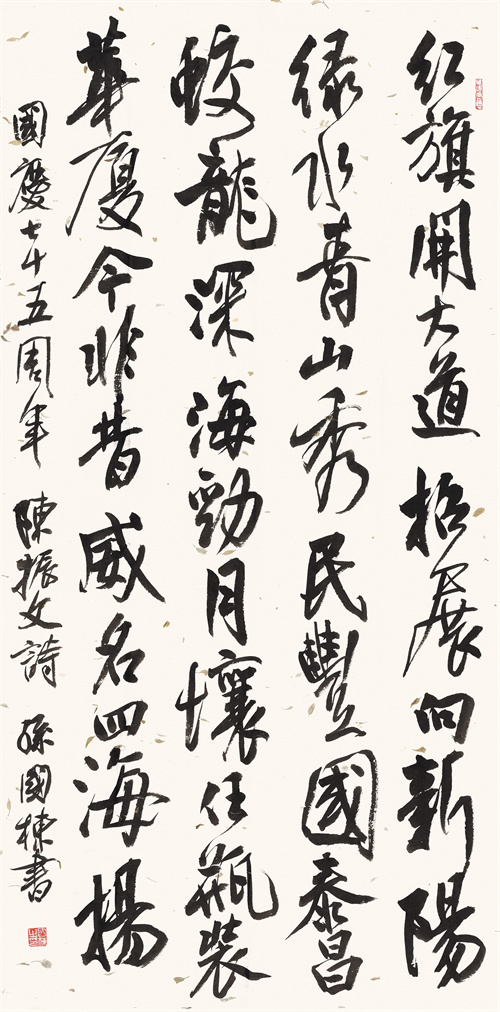 红旗開大道招展向新陽
绿水青山秀民豐國泰昌
蛟龍深海勁月壤任瓶裝
華夏今非昔威名四海揚
國慶七十五周年 陳振文詩 孫國棟書